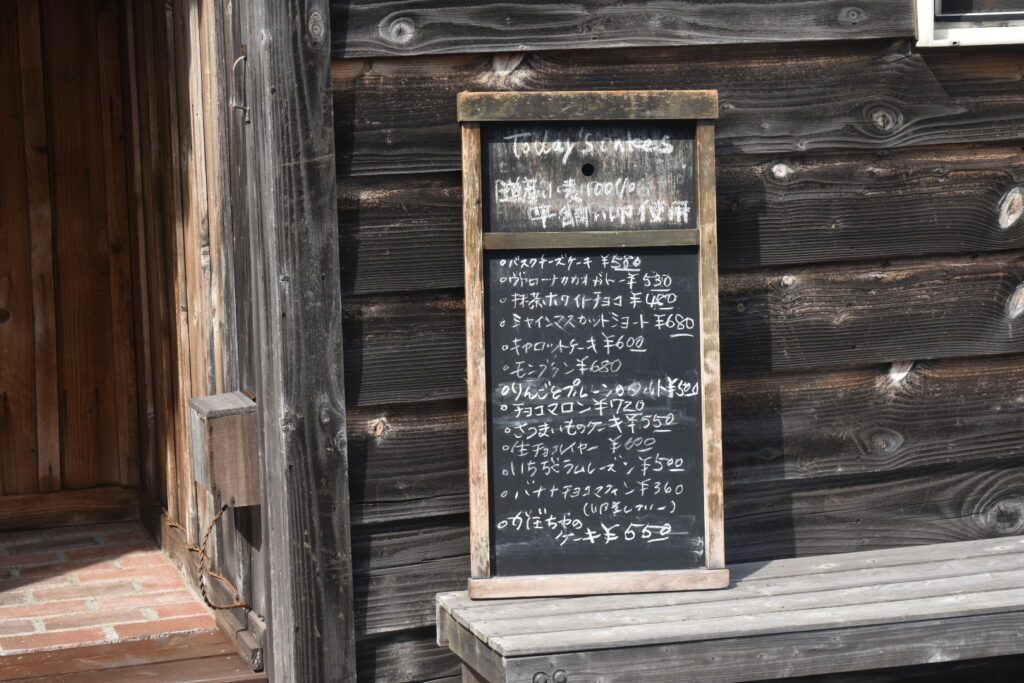 Today's Cakes
道産小麦100%
平飼い卵使用
○バスクチーズケーキ ¥580
○ヴァローナカカオガトー ¥530
○抹茶ホワイトチョコ ¥480
○シャインマスカットショート ¥680
○キャロットケーキ ¥600
○モンブラン ¥680
○りんごとプルーンのタルト ¥520
○チョコマロン ¥720
○さつまいものケーキ ¥550
○生チョコレイヤー ¥600
○いちぢくラムレーズン ¥500
○バナナチョコマフィン ¥360
(卵乳フリー)
○かぼちゃの
ケーキ ¥550